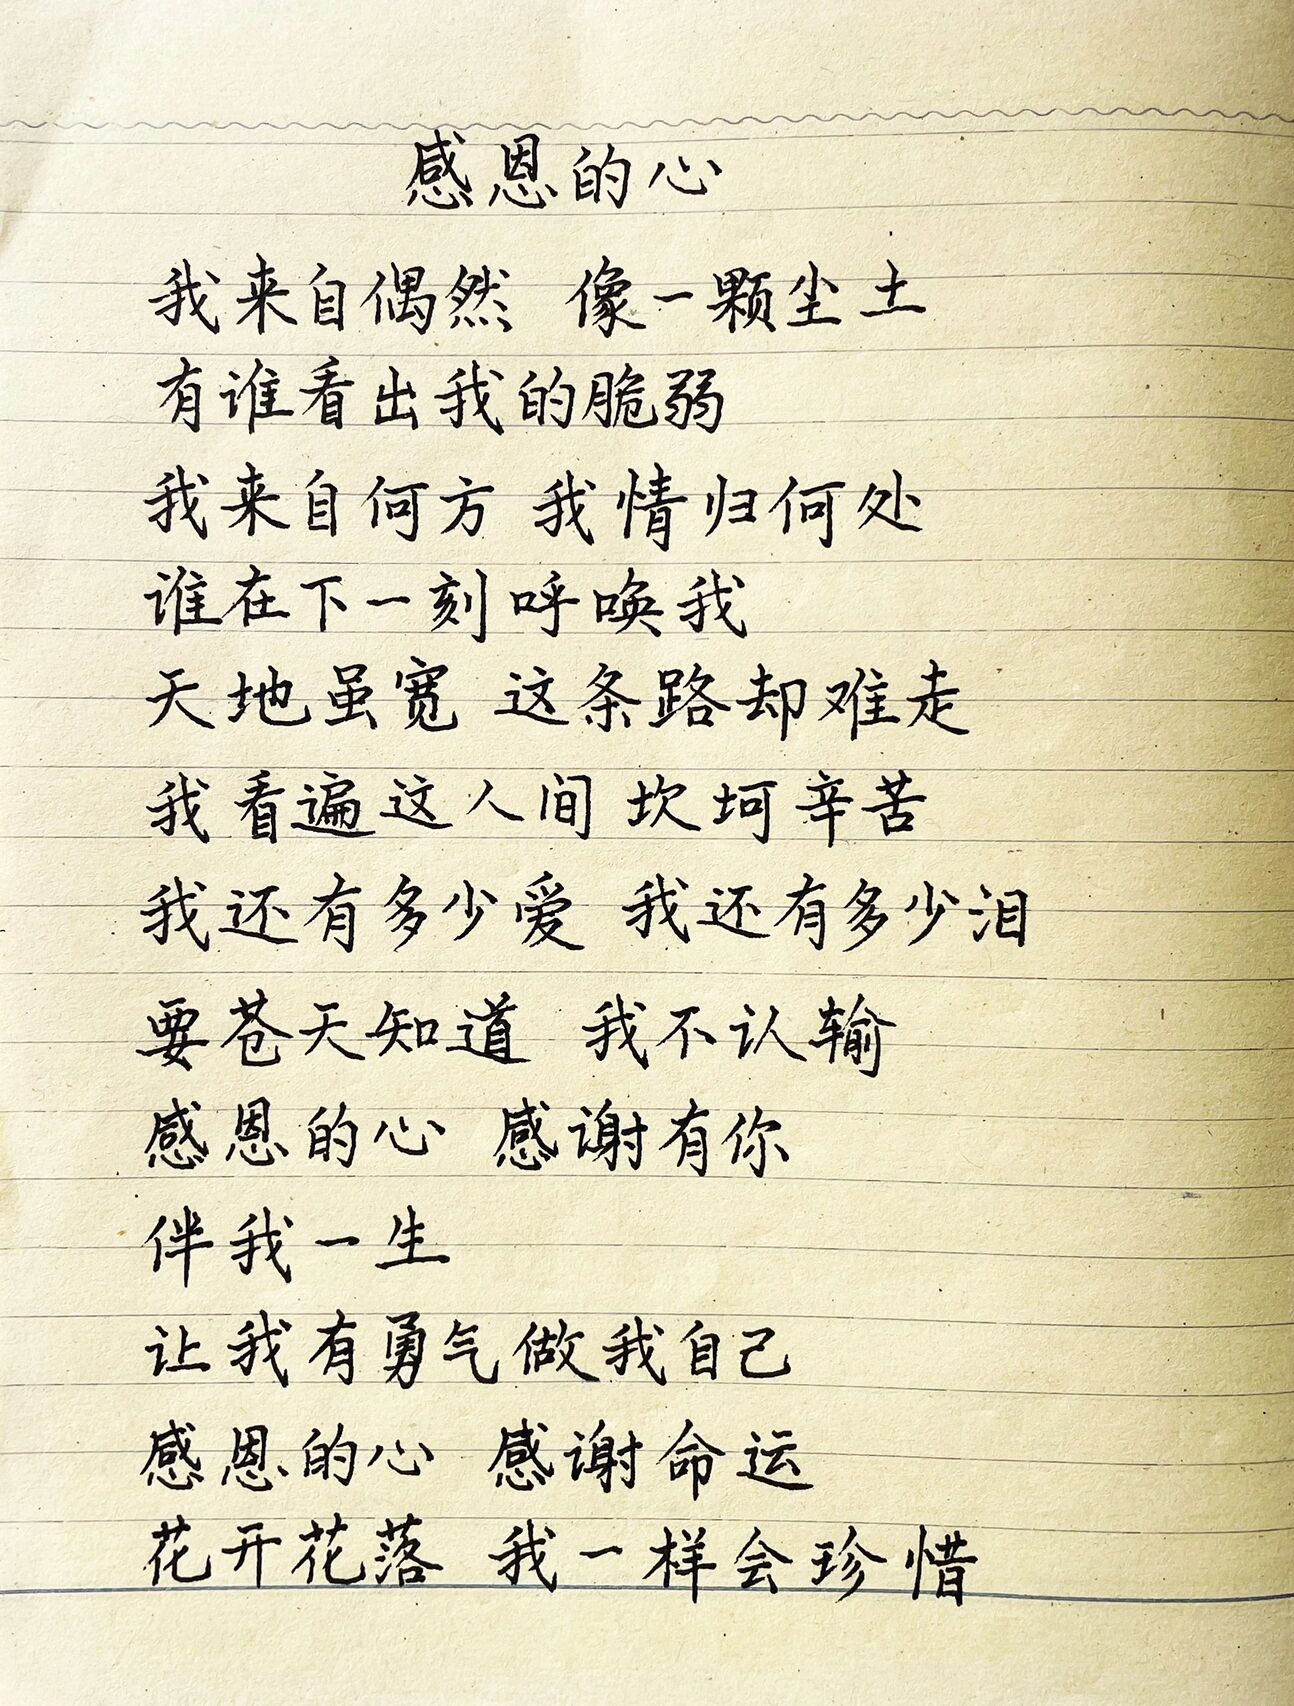 感恩的心
我来自偶然 像一颗尘土
有谁看出我的脆弱
我来自何方 我情归何处
谁在下一刻呼唤我
天地虽宽 这条路却难走
我看遍这人间 坎坷辛苦
我还有多少爱 我还有多少泪
要苍天知道 我不认输
感恩的心 感谢有你
伴我一生
让我有勇气做我自己
感恩的心 感谢命运
花开花落 我一样会珍惜